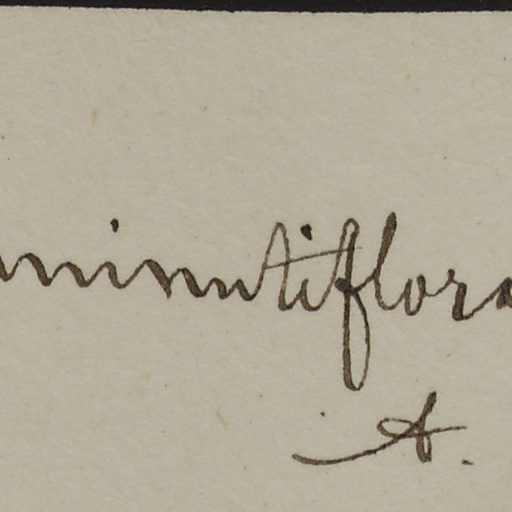 minutiflora
A.